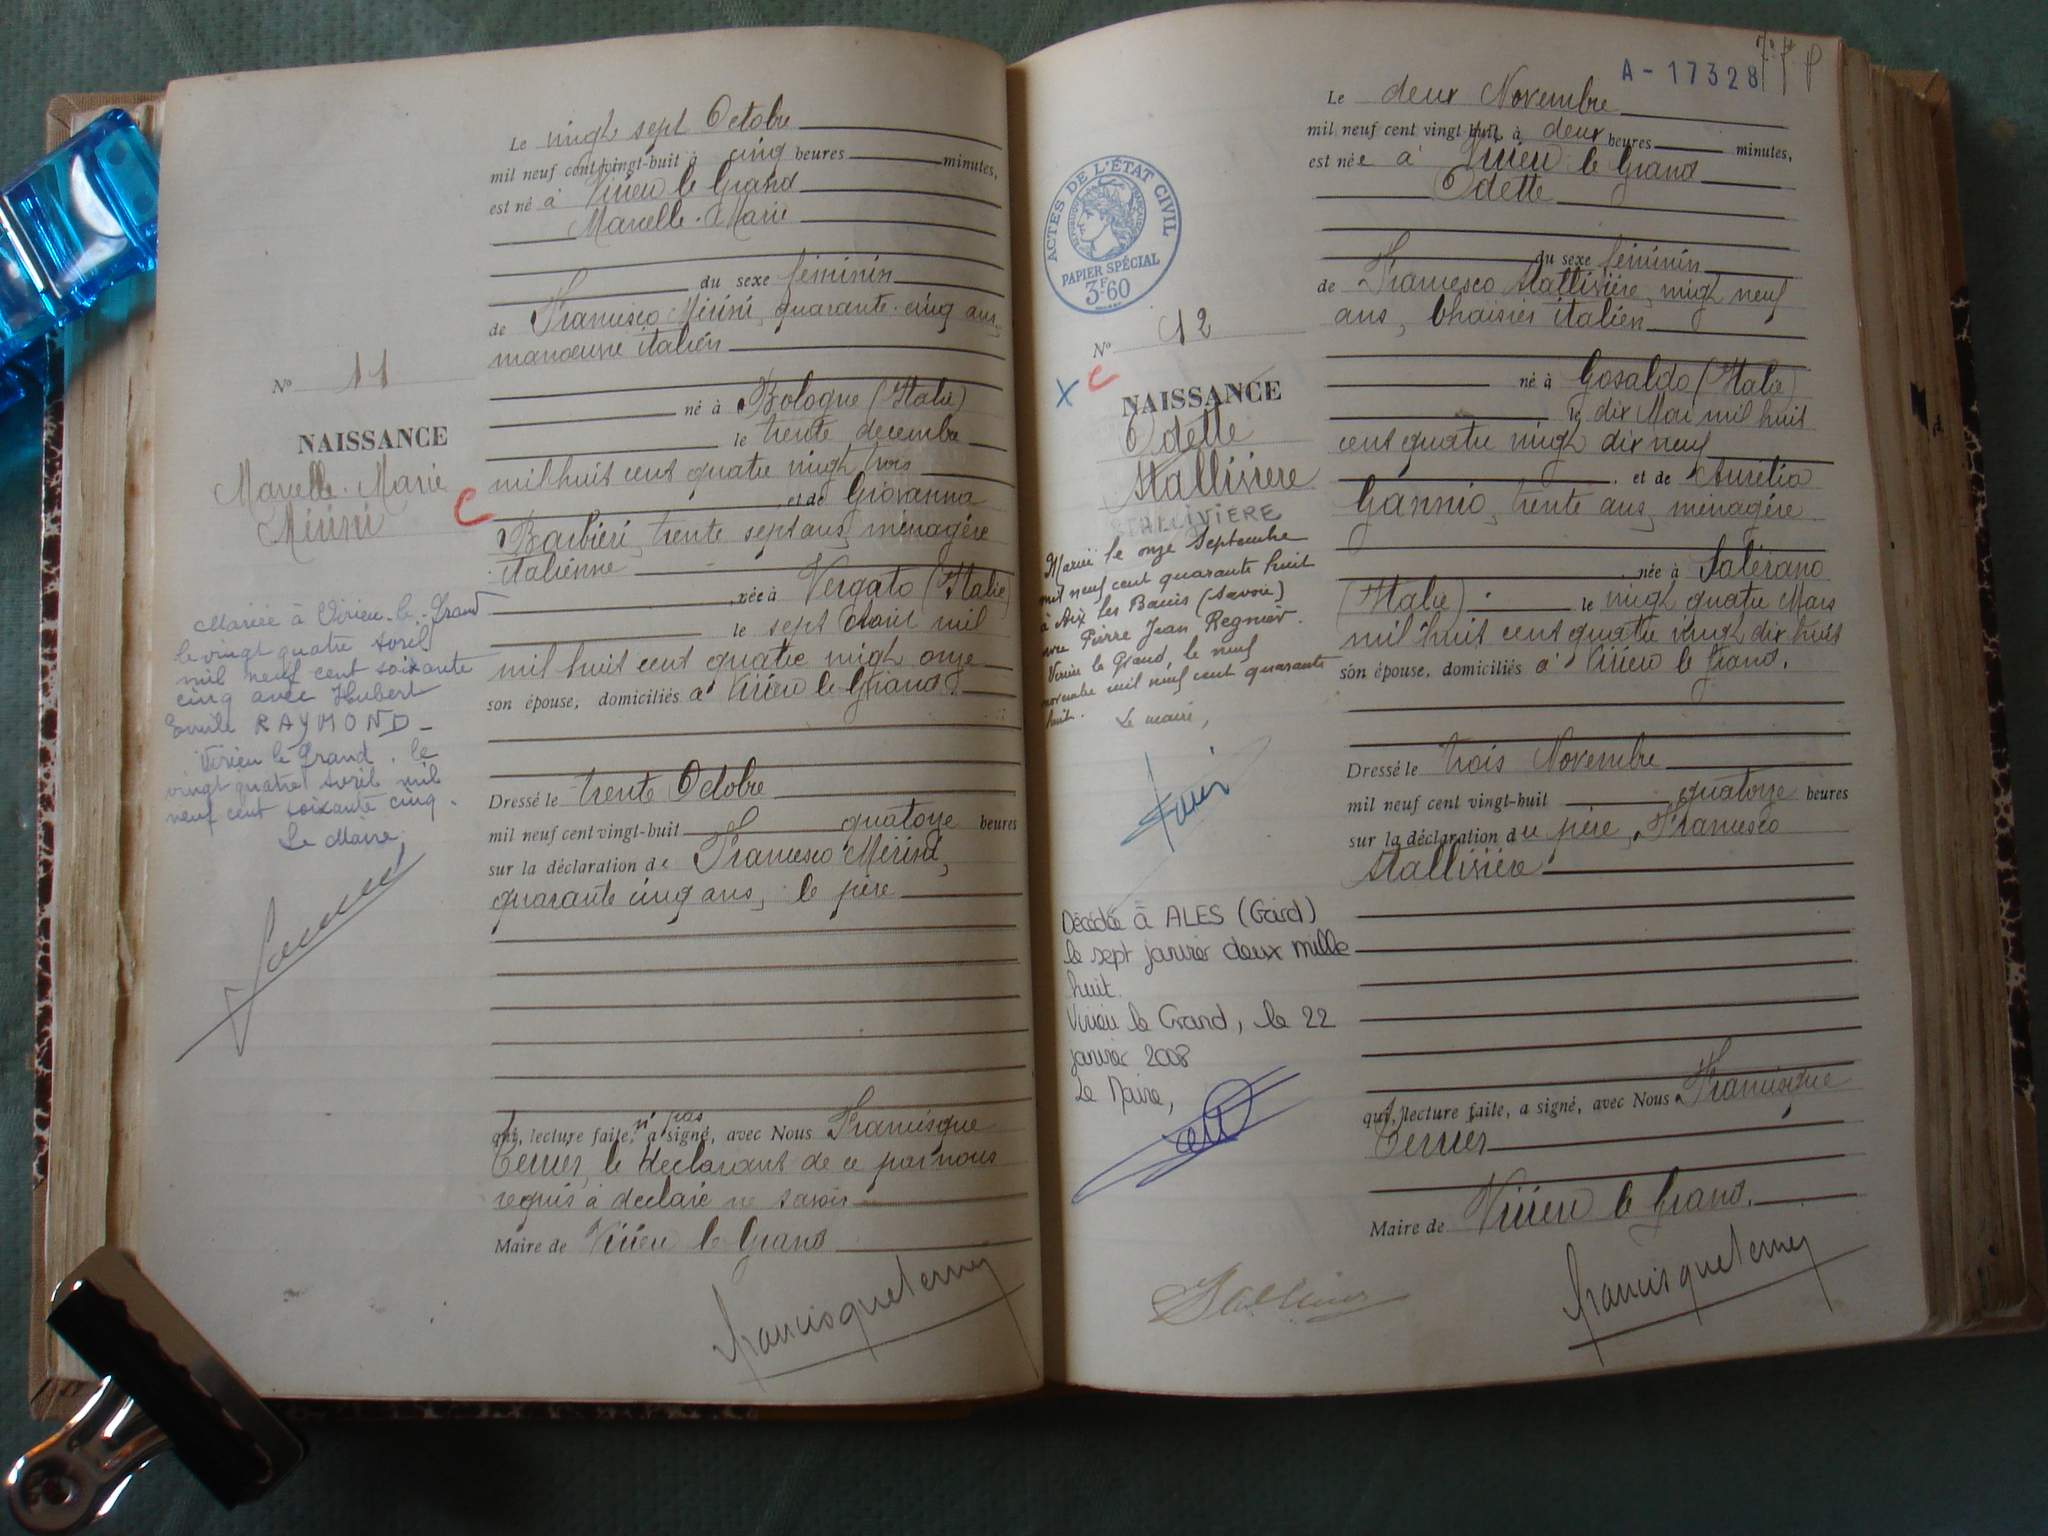 Le vingt sept Octobre
mil neuf cent vingt-huit à cinq heures minutes,
est né à Virieu le Grand
Marcelle-Marie
du sexe féminin
de Francesco Mérini, quarante-cinq ans,
manœuvre italien
né à Bologne (Italie)
le trente décembre
mil huit cent quatre vingt trois
et de Giovanna
Barbiéri, trente sept ans, ménagère
italienne
née à Vergato (Italie)
le sept Août mil
mil huit cent quatre vingt onze
son épouse, domiciliés à Virieu le Grand.
Dressé le trente Octobre
mil neuf cent vingt-huit quatorze heures
sur la déclaration de Francesco Mérini,
quarante cinq ans, le père
qui, lecture faite, n'a pas signé, avec Nous Francisque
Terrier, le déclarant de ce par nous
requis a déclaré ne savoir
Maire de Virieu le Grand
Francisque Terrier
No 11
NAISSANCE
Marcelle-Marie
Mérini
C
Mariée à Virieu-le-Grand
le vingt quatre avril
mil neuf cent soixante
cinq avec Hubert
Emile RAYMOND_
Virieu le Grand, le
vingt quatre avril mil
neuf cent soixante cinq.
Le Maire,
A-17328
Le deux Novembre
mil neuf cent vingt huit à deux heures minutes,
est née à Virieu le Grand
Odette
du sexe féminin
de Francesco Stallivière, vingt neuf
ans, Chaisier italien
né à Gosaldo (Italie)
le dix Mai mil huit
cent quatre vingt dix neuf
et de Aurélia
Gannio, trente ans, ménagère
née à Salérano
(Italie) le vingt quatre Mars
mil huit cent quatre vingt dix huit
son épouse, domiciliés à Virieu le Grand.
Dressé le trois Novembre
mil neuf cent vingt-huit quatorze heures
sur la déclaration du père, Francesco
Stallivière
qui, lecture faite, a signé, avec Nous Francisque
Terrier
Maire de Virieu le Grand.
Francisque Terrier
ACTES DE L'ÉTAT CIVIL
RÉPUBLIQUE FRANÇAISE
PAPIER SPÉCIAL
3F60
No 12
X C
NAISSANCE
Odette
Stallivière
STALLIVIERE
Mariée le onze Septembre
mil neuf cent quarante huit
à Aix les Bains (Savoie)
avec Pierre Jean Regnier.
Virieu le Grand, le neuf
novembre mil neuf cent quarante
huit.
Le maire,
Décédée à ALES (Gard)
le sept janvier deux mille
huit.
Virieu le Grand, le 22
janvier 2008
Le Maire,